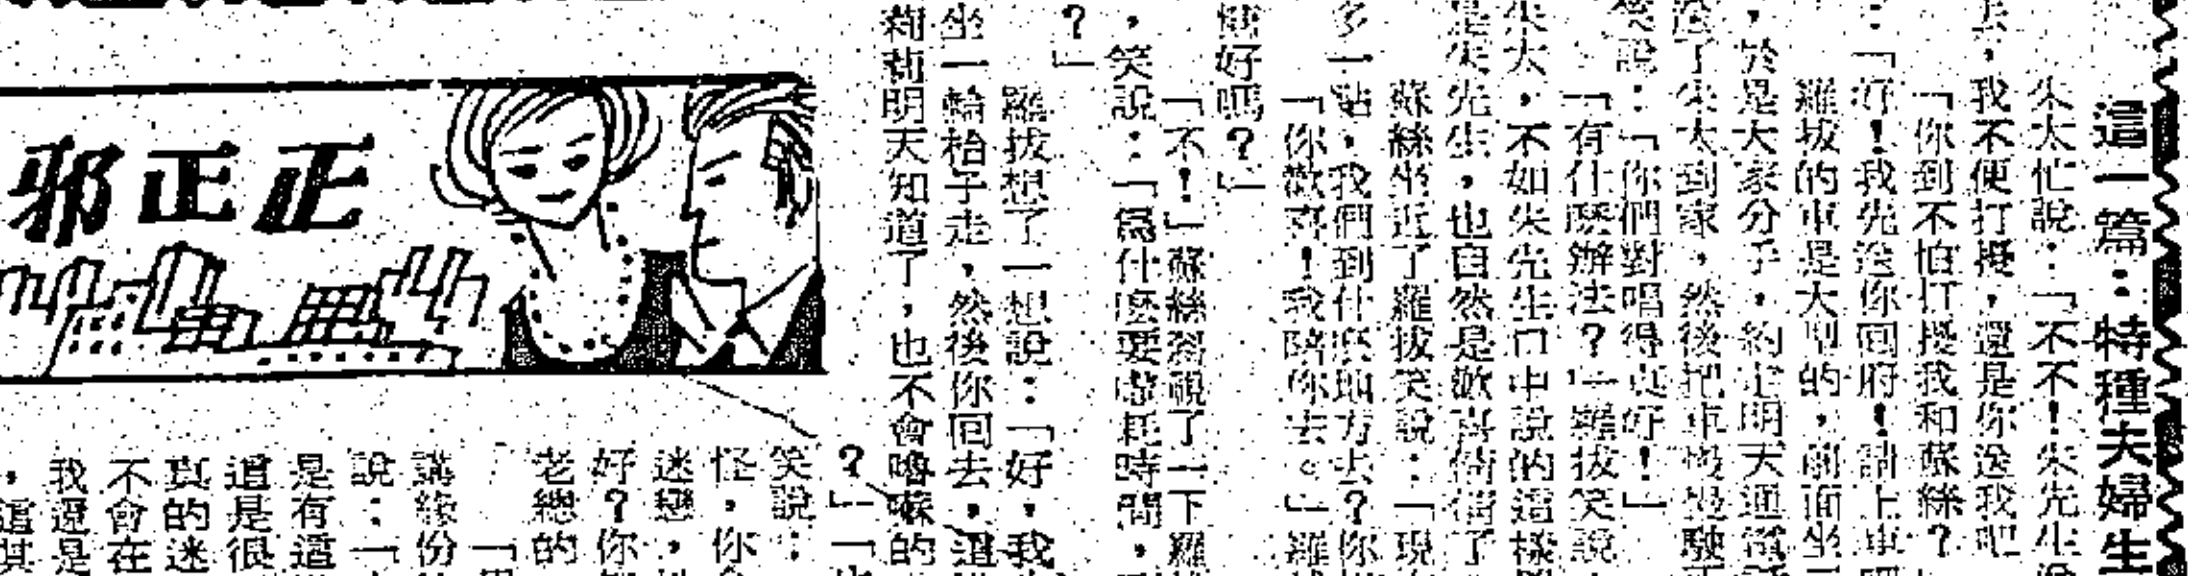 這一篇：特種夫婦生
朱太忙說：「不不！朱先生
，我不便打擾，還是你送我吧
「你到不怕打擾我和蘇絲？
：「好！我先送你回府！請上車
羅拔的車是大型的，前面坐
，於是大家分手，約定明天通電話
了朱太到家，然後把車慢慢駛
笑說：「你們對唱得真好！」
「有什麼辦法？」羅拔笑說
朱太，不如朱先生口中說的這樣
是朱先生，也自然是歡喜倩倩了
蘇絲坐近了羅拔笑說：「現
多一點，我們到什麼地方去？你
「你歡喜！我陪你去。」羅
好嗎？」
「不！」蘇絲斜視了一下羅
，笑說：「爲什麼要虛耗時間，
？」
羅拔想了一想說：「好，我
坐一輪枱子走，然後你回去，還
莉莉明天知道了，也不會嚕囌的
正正邪
？」「
笑說：
怪，你
迷戀，
好？你
老總的
「
講緣份
說：「
是有這
道是很
真的迷
不會在
我還是
，這其